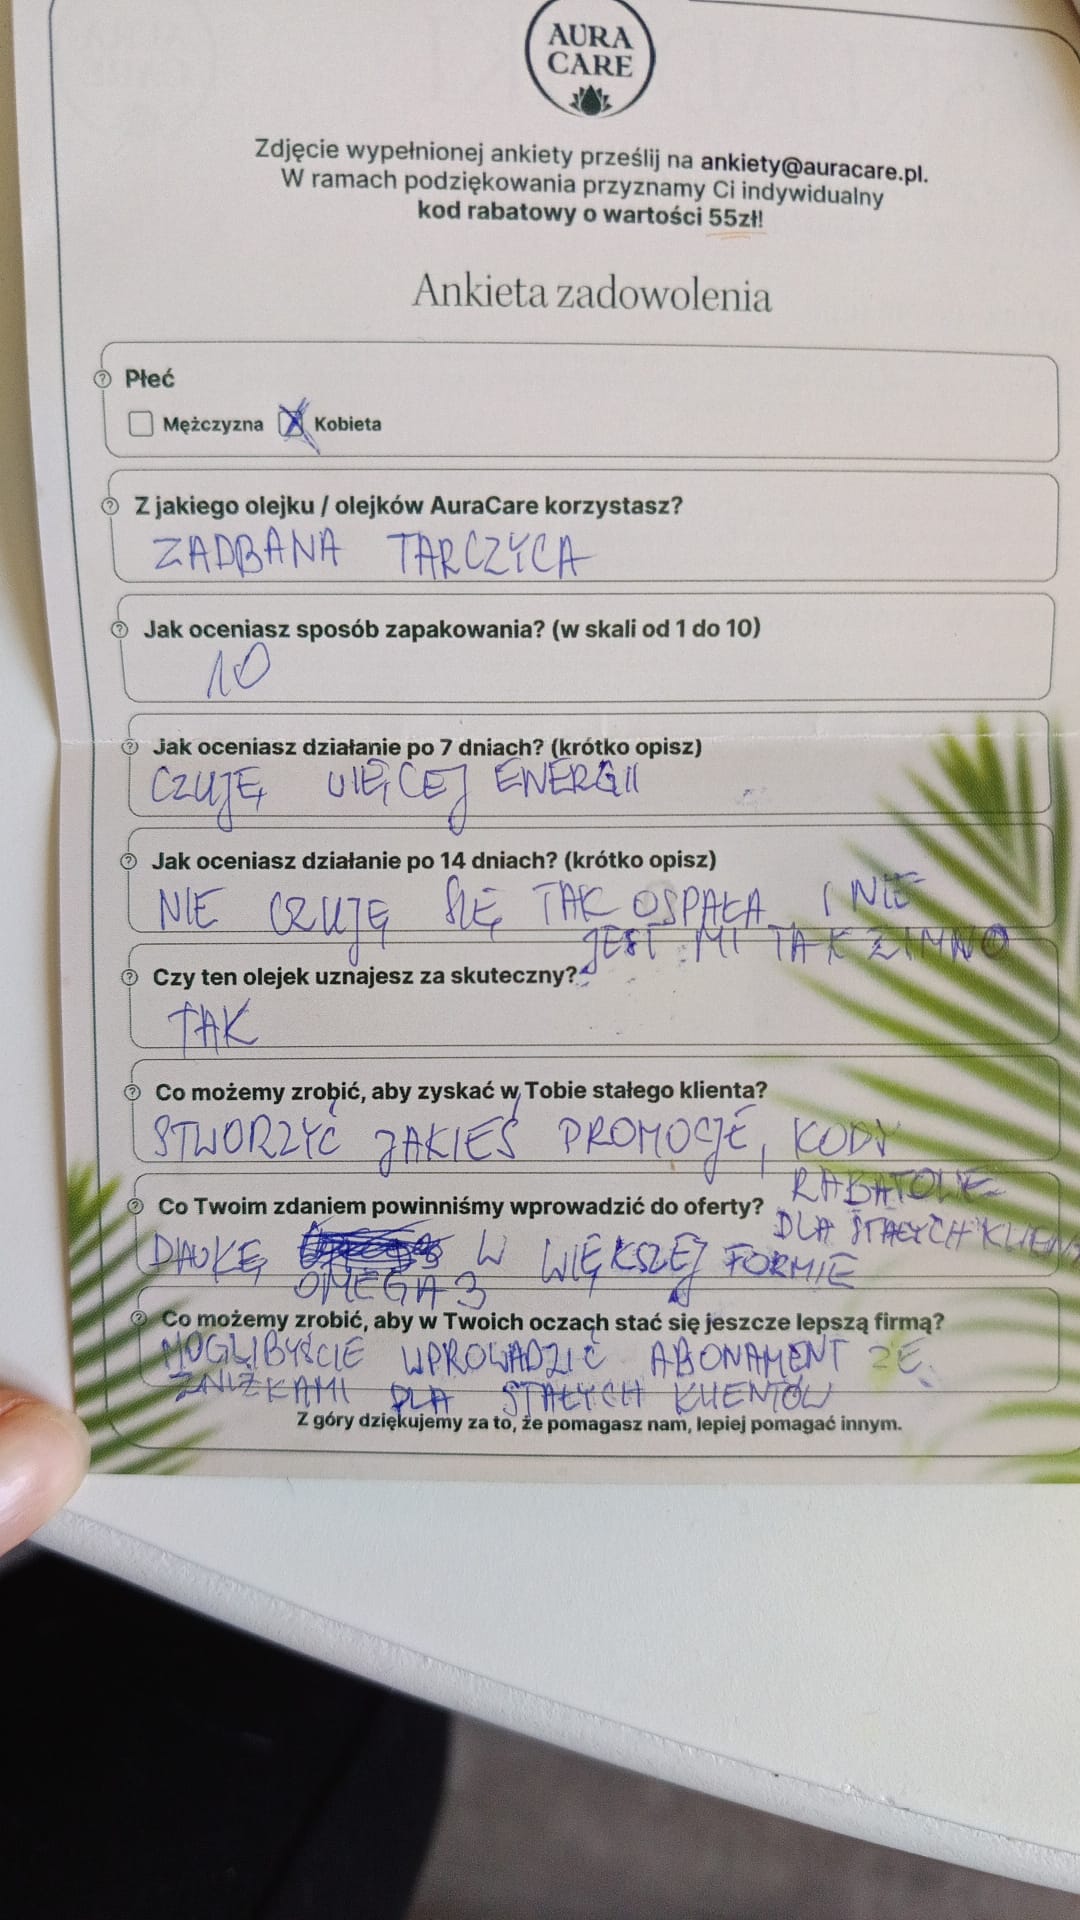 AURA
CARE
Zdjęcie wypełnionej ankiety prześlij na ankiety@auracare.pl.
W ramach podziękowania przyznamy Ci indywidualny
kod rabatowy o wartości 55zł!
Ankieta zadowolenia
Płeć
Mężczyzna X Kobieta
Z jakiego olejku / olejków AuraCare korzystasz?
ZADBANA TARCZYCA
Jak oceniasz sposób zapakowania? (w skali od 1 do 10)
10
Jak oceniasz działanie po 7 dniach? (krótko opisz)
CZUJĘ WIĘCEJ ENERGII
Jak oceniasz działanie po 14 dniach? (krótko opisz)
NIE CZUJĘ SIĘ TAK OSPAŁA I NIE
JEST MI TAK ZIMNO
Czy ten olejek uznajesz za skuteczny?
TAK
Co możemy zrobić, aby zyskać w Tobie stałego klienta?
STWORZYĆ JAKIEŚ PROMOCJE, KODY
RABATOWE
DLA STAŁYCH KLIENT
Co Twoim zdaniem powinniśmy wprowadzić do oferty?
DAWKĘ W WIĘKSZEJ FORMIE
OMEGA 3
Co możemy zrobić, aby w Twoich oczach stać się jeszcze lepszą firmą?
MOGLIBYŚCIE WPROWADZIĆ ABONAMENT ZE
ZNIŻKAMI DLA STAŁYCH KLIENTÓW
Z góry dziękujemy za to, że pomagasz nam, lepiej pomagać innym.